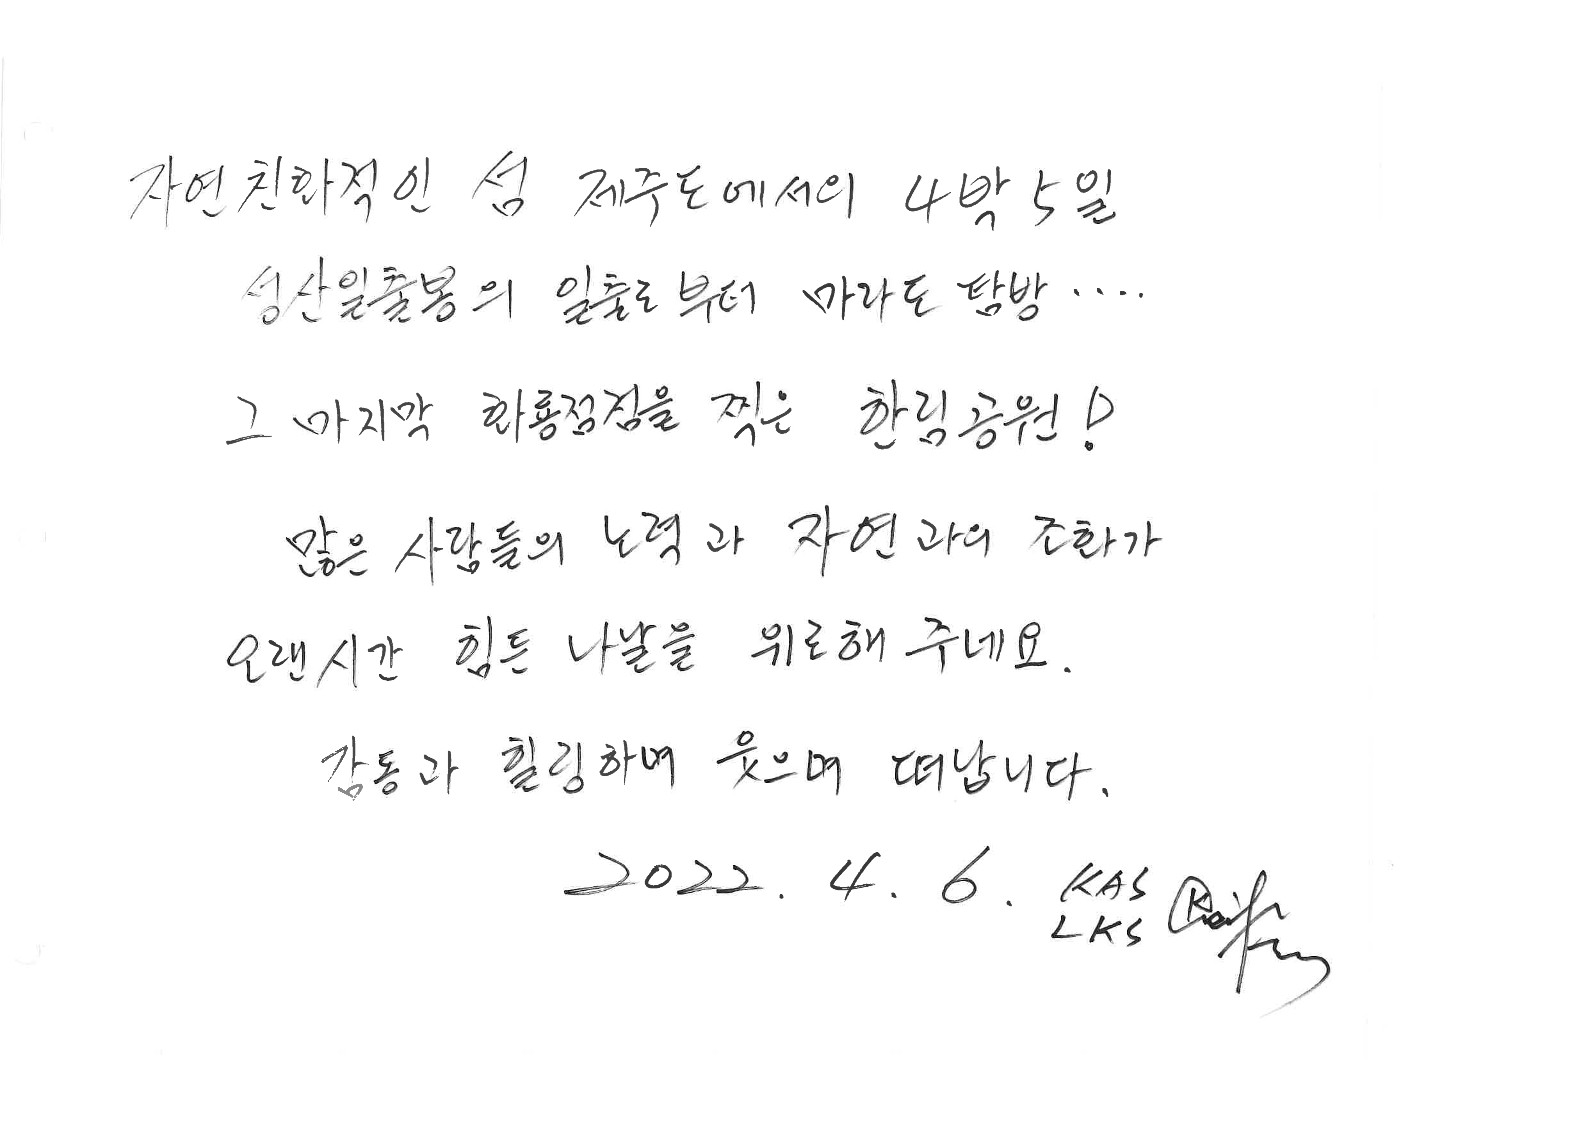 자연친화적인 섬 제주도에서의 4박 5일
성산일출봉의 일출로부터 마라도 탐방 ....
그 마지막 화룡점점을 찍은 한림공원!
많은 사람들의 노력과 자연과의 조화가
오랜시간 힘든 나날을 위로해 주네요.
감동과 힐링하며 웃으며 떠납니다.
2022. 4. 6. KAS
LKS